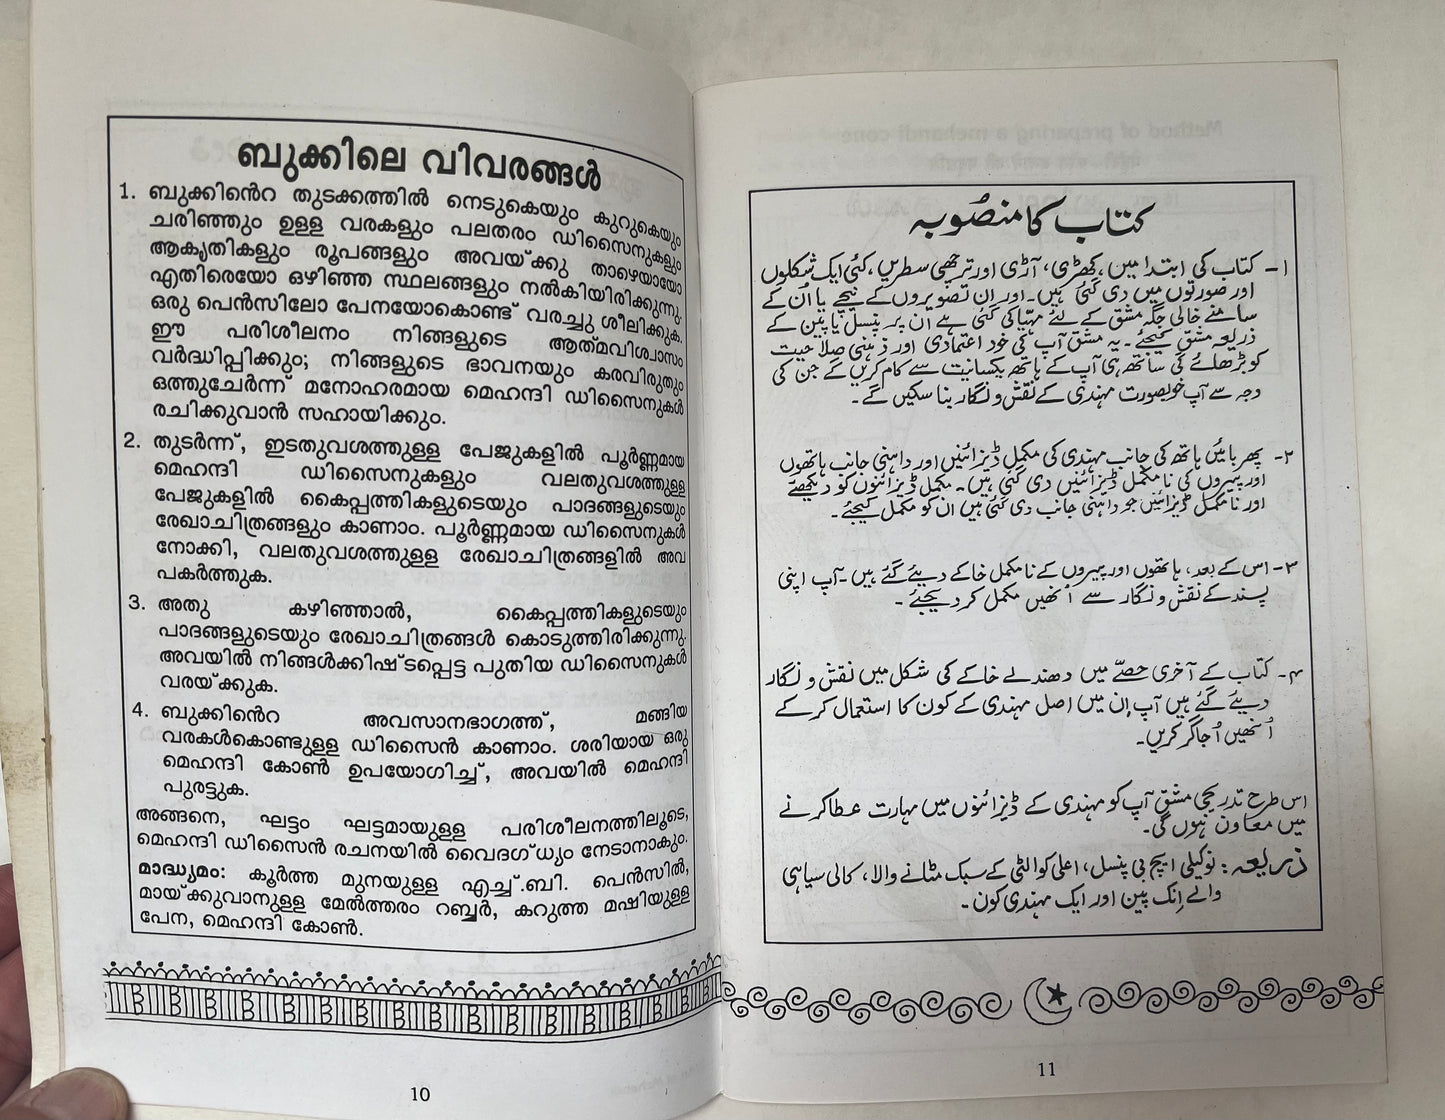 ബുക്കിലെ വിവരങ്ങൾ
1. ബുക്കിൻെറ തുടക്കത്തിൽ നെടുകെയും കുറുകെയും
ചരിഞ്ഞും ഉള്ള വരകളും പലതരം ഡിസൈനുകളും
ആകൃതികളും രൂപങ്ങളും അവയ്ക്കു താഴെയായോ
എതിരെയോ ഒഴിഞ്ഞ സ്ഥലങ്ങളും നൽകിയിരിക്കുന്നു.
ഒരു പെൻസിലോ പേനയോകൊണ്ട് വരച്ചു ശീലിക്കുക.
ഈ പരിശീലനം നിങ്ങളുടെ ആത്മവിശ്വാസം
വർദ്ധിപ്പിക്കും; നിങ്ങളുടെ ഭാവനയും കരവിരുതും
ഒത്തുചേർന്ന് മനോഹരമായ മെഹന്ദി ഡിസൈനുകൾ
രചിക്കുവാൻ സഹായിക്കും.
2. തുടർന്ന്, ഇടതുവശത്തുള്ള പേജുകളിൽ പൂർണ്ണമായ
മെഹന്ദി ഡിസൈനുകളും വലതുവശത്തുള്ള
പേജുകളിൽ കൈപ്പത്തികളുടെയും പാദങ്ങളുടെയും
രേഖാചിത്രങ്ങളും കാണാം. പൂർണ്ണമായ ഡിസൈനുകൾ
നോക്കി, വലതുവശത്തുള്ള രേഖാചിത്രങ്ങളിൽ അവ
പകർത്തുക.
3. അതു കഴിഞ്ഞാൽ, കൈപ്പത്തികളുടെയും
പാദങ്ങളുടെയും രേഖാചിത്രങ്ങൾ കൊടുത്തിരിക്കുന്നു.
അവയിൽ നിങ്ങൾക്കിഷ്ടപ്പെട്ട പുതിയ ഡിസൈനുകൾ
വരയ്ക്കുക.
4. ബുക്കിൻെറ അവസാനഭാഗത്ത്, മങ്ങിയ
വരകൾകൊണ്ടുള്ള ഡിസൈൻ കാണാം. ശരിയായ ഒരു
മെഹന്ദി കോൺ ഉപയോഗിച്ച്, അവയിൽ മെഹന്ദി
പുരട്ടുക.
അങ്ങനെ, ഘട്ടം ഘട്ടമായുള്ള പരിശീലനത്തിലൂടെ,
മെഹന്ദി ഡിസൈൻ രചനയിൽ വൈദഗ്ധ്യം നേടാനാകും.
മാദ്ധ്യമം: കൂർത്ത മുനയുള്ള എച്ച്.ബി. പെൻസിൽ,
മായ്ക്കുവാനുള്ള മേൽത്തരം റബ്ബർ, കറുത്ത മഷിയുള്ള
പേന, മെഹന്ദി കോൺ.
10
کتاب کا منصوبہ
۱- کتاب کی ابتدا میں، کھڑی، آڑی اور ترچھی سطریں، کئی ایک شکلوں
اور صورتوں میں دی گئی ہیں۔ اور ان تصویروں کے نیچے یا اُن کے
سامنے خالی جگہ مشق کے لئے مہیّا کی گئی ہے ان پر پنسل یا پین کے
ذریعہ مشق کیجئے۔ یہ مشق آپ کی خود اعتمادی اور ذہنی صلاحیت
کو بڑھانے کی ساتھ ہی آپ کے ہاتھ یکسانیت سے کام کریں گے جن کی
وجہ سے آپ خوبصورت مہندی کے نقش و نگار بنا سکیں گے۔
۲- پھر بائیں ہاتھ کی جانب مہندی کی مکمل ڈیزائنیں اور داہنی جانب ہاتھوں
اور پیروں کی نا مکمل ڈیزائنیں دی گئی ہیں۔ مکمل ڈیزائنوں کو دیکھئے
اور نا مکمل ڈیزائنیں جو داہنی جانب دی گئی ہیں ان کو مکمل کیجئے۔
۳- اس کے بعد، ہاتھوں اور پیروں کے نا مکمل خاکے دیئے گئے ہیں۔ آپ اپنی
پسند کے نقش و نگار سے اُنھیں مکمل کر دیجئے۔
۴- کتاب کے آخری حصّے میں دھندلے خاکے کی شکل میں نقش و نگار
دیئے گئے ہیں آپ اِن میں اصل مہندی کے کون کا استعمال کر کے
اُنھیں اُجاگر کریں۔
اس طرح تدریجی مشق آپ کو مہندی کے ڈیزائنوں میں مہارت عطا کرنے
میں معاون ہوں گی۔
ذریعہ: نوکیلی ایچ بی پنسل، اعلیٰ کوالٹی کے سبک مٹانے والا، کالی سیاہی
والے اِنک پین اور ایک مہندی کون۔
11